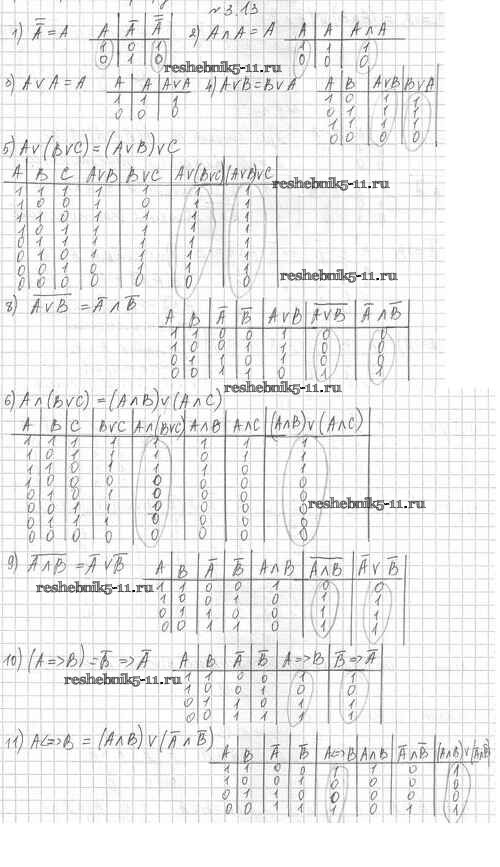 №3.13
1) A̿ = A
A | A̅ | A̿
1 | 0 | 1
0 | 1 | 0
2) A∧A = A
A | A | A∧A
1 | 1 | 1
0 | 1 | 0
reshebnik5-11.ru
3) A∨A = A
A | A | A∨A
1 | 1 | 1
0 | 0 | 0
4) A∨B = B∨A
A | B | A∨B | B∨A
1 | 0 | 1 | 1
0 | 1 | 1 | 1
1 | 1 | 1 | 1
0 | 0 | 0 | 0
5) A∨(B∨C) = (A∨B)∨C
A | B | C | A∨B | B∨C | A∨(B∨C) | (A∨B)∨C
1 | 1 | 1 | 1 | 1 | 1 | 1
1 | 0 | 0 | 1 | 0 | 1 | 1
1 | 1 | 0 | 1 | 1 | 1 | 1
0 | 1 | 1 | 1 | 1 | 1
0 | 1 | 1 | 1 | 1 | 1
0 | 0 | 1 | 0 | 1 | 1 | 1
0 | 0 | 0 | 0 | 0 | 0 | 0
reshebnik5-11.ru
reshebnik5-11.ru
8) A∨B̅ = A̅∧B̅
A | B | A̅ | B̅ | A∨B | A∨B̅ | A̅∧B̅
1 | 1 | 0 | 0 | 1 | 0 | 0
1 | 0 | 0 | 1 | 1 | 0 | 0
0 | 1 | 1 | 0 | 1 | 0 | 0
0 | 0 | 1 | 1 | 0 | 1 | 1
reshebnik5-11.ru
6) A∧(B∨C) = (A∧B)∨(A∧C)
A | B | C | B∨C | A∧(B∨C) | A∧B | A∧C | (A∧B)∨(A∧C)
1 | 1 | 1 | 1 | 1 | 1 | 1 | 1
1 | 0 | 1 | 1 | 1 | 0 | 1 | 1
1 | 1 | 0 | 1 | 1 | 1 | 0 | 1
1 | 0 | 0 | 0 | 0 | 0 | 0 | 0
0 | 1 | 0 | 1 | 0 | 0 | 0 | 0
0 | 0 | 1 | 1 | 0 | 0 | 0 | 0
0 | 1 | 1 | 1 | 0 | 0 | 0 | 0
0 | 0 | 0 | 0 | 0 | 0 | 0 | 0
reshebnik5-11.ru
9) A∧B̅ = A̅∨B̅
A | B | A̅ | B̅ | A∧B | A∧B̅ | A̅∨B̅
1 | 1 | 0 | 0 | 1 | 0 | 0
1 | 0 | 0 | 1 | 0 | 1 | 1
0 | 1 | 1 | 0 | 0 | 1 | 1
0 | 0 | 1 | 1 | 0 | 1 | 1
reshebnik5-11.ru
10) (A=>B) = B̅=>A̅
A | B | A̅ | B̅ | A=>B | B̅=>A̅
1 | 1 | 0 | 0 | 1 | 1
1 | 0 | 0 | 1 | 0 | 0
0 | 1 | 1 | 0 | 1 | 1
0 | 0 | 1 | 1 | 1 | 1
reshebnik5-11.ru
11) A<=>B = (A∧B)∨(A̅∧B̅)
A | B | A̅ | B̅ | A<=>B | A∧B | A̅∧B̅ | (A∧B)∨(A̅∧B̅)
1 | 1 | 0 | 0 | 1 | 1 | 0 | 1
1 | 0 | 0 | 1 | 0 | 0 | 0 | 0
0 | 1 | 1 | 0 | 0 | 0 | 0 | 0
0 | 0 | 1 | 1 | 1 | 0 | 1 | 1